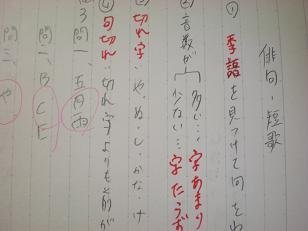 俳句・短歌
① 季語を見つけて句をわ
② 音数が 多い…字あまり
少ない…字たらず
③ 切れ字…や、ぬ・し・かな・け
④ 句切れ…切れ字よりも前が
問一、五月雨
問二、B C E
問三、や